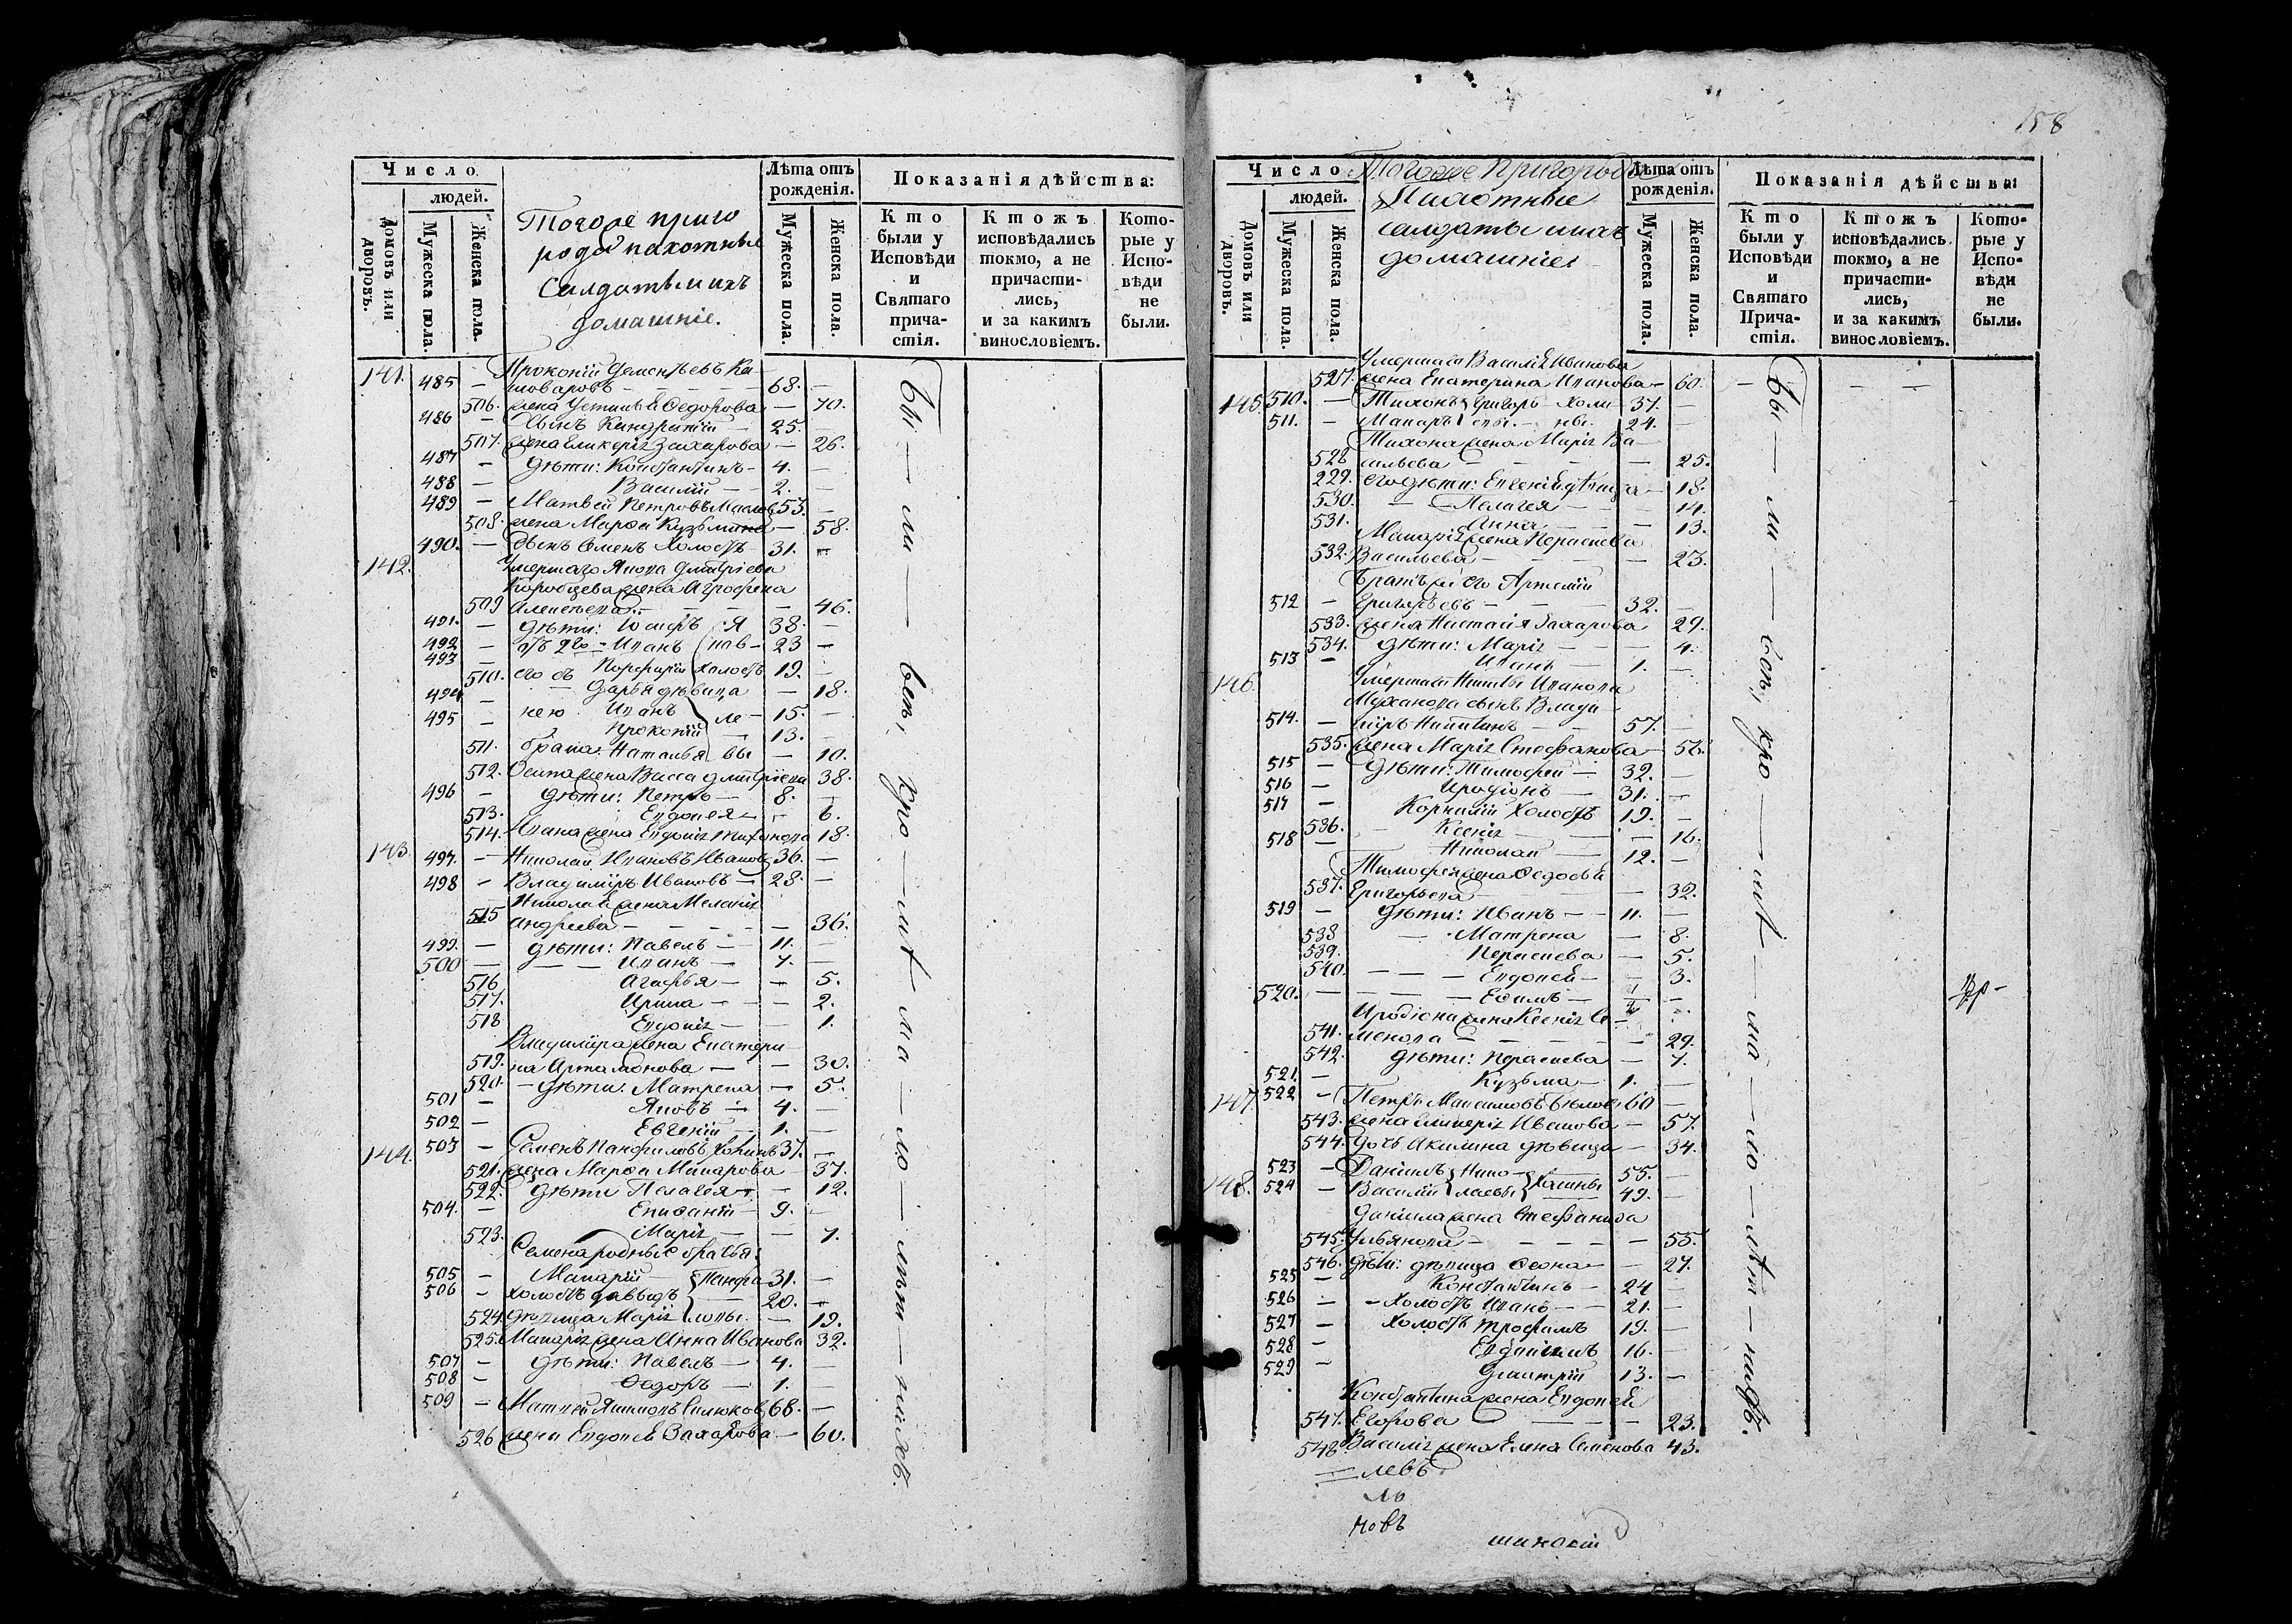 Число
людей.
Домовъ или дворовъ.
Мужеска пола.
Женска пола.
Тогоже приго
рода пахотные
Солдаты и ихъ
домашніе.
Лѣта отъ рожденія.
Мужеска пола.
Женска пола.
Показанія дѣйства:
Кто были у Исповѣди и Святаго причастія.
Ктожъ исповѣдались токмо, а не причастились, и за какимъ винословіемъ.
Которые у Исповѣди не были.
141. Прокопій Дементьевъ
485 – 68. –
506. жена Устинья Федорова – 70.
486 – Сынъ Киндратій – 25. –
507. жена Гликерія Захарова – 26.
487 – дѣти: Константинъ – 4. –
488 – Василій – 2. –
489 – Матвей Петровъ 53. –
508. жена Марфа Кузьмина – 58.
490. – Сынъ Семенъ Холостъ – 31. –
142. Умершаго Якова Дмитріева
Коробцева жена Агрофена
509 Алексеева – 46.
491. – дѣти: Іосифъ Я 38. –
492 – отъ 2го – Иванъ ков – 23 –
493 – его съ Порфирій холостъ 19. –
510. – Дарья дѣвица – 18.
494 – нею Иванъ ле – 15. –
495 – Прокопій – 13. –
511. брака Наталья вы – 10.
512. Осипа жена Васса Дмитріева 38.
496 – дѣти: Петръ – 8. –
513. Евдокея – 6.
514. Ивана жена Евдокія Тихонова 18.
143. 497. – Николай Ивановъ Иванов 36. –
498 – Владиміръ Ивановъ – 28. –
Николая жена Меланія
515 Андреева – 36.
499. – дѣти: Павелъ – 11. –
500 – Иванъ – 7. –
516 Агафья – 5.
517. Ирина – 2.
518 Евдокія – 1.
Владиміра жена Екатери
519. на Артамонова – 30.
520. – дѣти: Матрена – 5.
501 – Яковъ – 4. –
502 – Евгеній – 1. –
144. 503 – Семенъ Панфиловъ 37. –
521. жена Марфа Макарова 37.
522. дѣти Пелагея – 12.
504. – Епифаній – 9. –
523. Марія – 7.
Семена родные братья:
505 – Макарій Панфи 31. –
506 – холостъ Давыдъ – 20. –
524. дѣвица Марія ловы. – 19.
525. Макарія жена Анна Иванова 32.
507 – дѣти: Павелъ – 4. –
508 – Федоръ – 1. –
509 – Матвей 68. –
526 жена Евдокея Захарова – 60.
Бы – ли – все, кро – мѣ – ма – ло – лѣт – нихъ.
158
Число
людей.
Домовъ или дворовъ.
Мужеска пола.
Женска пола.
Тогоже Пригорода
Пахотные
солдаты и ихъ
домашніе:
Лѣта отъ рожденія.
Мужеска пола.
Женска пола.
Показанія дѣйства:
Кто были у Исповѣди и Святаго Причастія.
Ктожъ исповѣдались токмо, а не причастились, и за какимъ винословіемъ.
Которые у Исповѣди не были.
Умершаго Василья Иванова
527. жена Екатерина Иванова – 60.
145. 510. – Тихонъ Григорь – Холи 37. –
511. – Макаръ евы. – ны. 24. –
Тихона жена Марія Ва
528 сильева – 25.
229. его дѣти: Евгенія дѣвица – 18.
530. – Пелагея – 14.
531. Анна – 13.
Макарья жена Пераскева
532. Васильева – 23.
Братъ его Артемій
512 – Григорьевъ – 32. –
533. жена Настасія Захарова 29.
534. дѣти: Марія – 4.
513 – Иванъ – 1. –
146. Умершаго Никиты Иванова
сынъ Влади
514. – міръ Никитинъ – 57. –
535. жена Марія Стефанова – 56.
515 – дѣти: Тимофей – 32. –
516 – Иродіонъ – 31. –
517 – Корнилій Холостъ 19. –
536. – Ксенія – 16.
518 – Николай – 12. –
Тимофея жена Федосья
537. Григорьева – 32.
519 – дѣти: Иванъ – 11. –
538 – Матрена – 8.
539. Пераскева – 5.
540. – Евдокея – 3.
520. – Ефимъ –
Иродіона жена Ксенія Се
541. менова – 29.
542. дѣти: Пераскева – 7.
521. – Кузьма – 1. –
147. 522 – Петръ Максимовъ 60 –
543. жена Гликерія Иванова – 57.
544. дочь Акилина дѣвица – 34.
148. 523 – Даніилъ Нико – 55. –
524 – Василій лаевы 49. –
Даніила жена Стефанида
545. Ульянова – 55.
546. дѣти: дѣвица Феона – 27.
525 – Константинъ – 24 –
526 – – холостъ Иванъ – 21. –
527 – холостъ Трофимъ 19. –
528 – Евдокимъ 16. –
529 – Дмитрій 13. –
Константина жена Евдокея
547. Егорова – 23.
548. Василія жена Елена Семенова 43.
Бы – ли – все, кро – мѣ – ма – ло – лѣт – нихъ.
левъ
ло
новъ